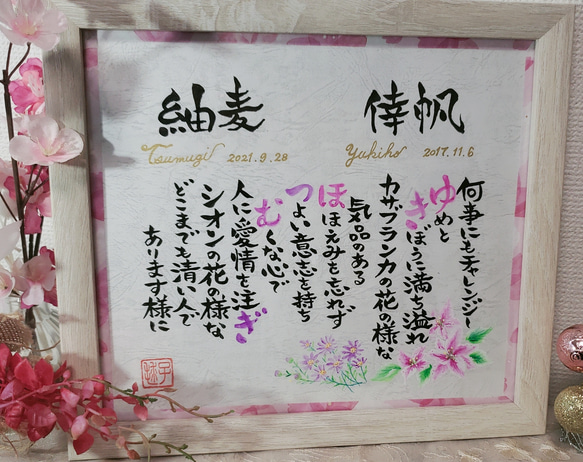 倖帆
Yukiho 2017.11.6
紬麦
Tsumugi 2021.9.28
何事にもチャレンジし
ゆめと
きぼうに満ち溢れ
カサブランカの花の様な
気品のある
ほほえみを忘れず
つよい意志を持ち
むくな心で
人に愛情を注ぎ
シオンの花の様な
どこまでも清い人で
あります様に